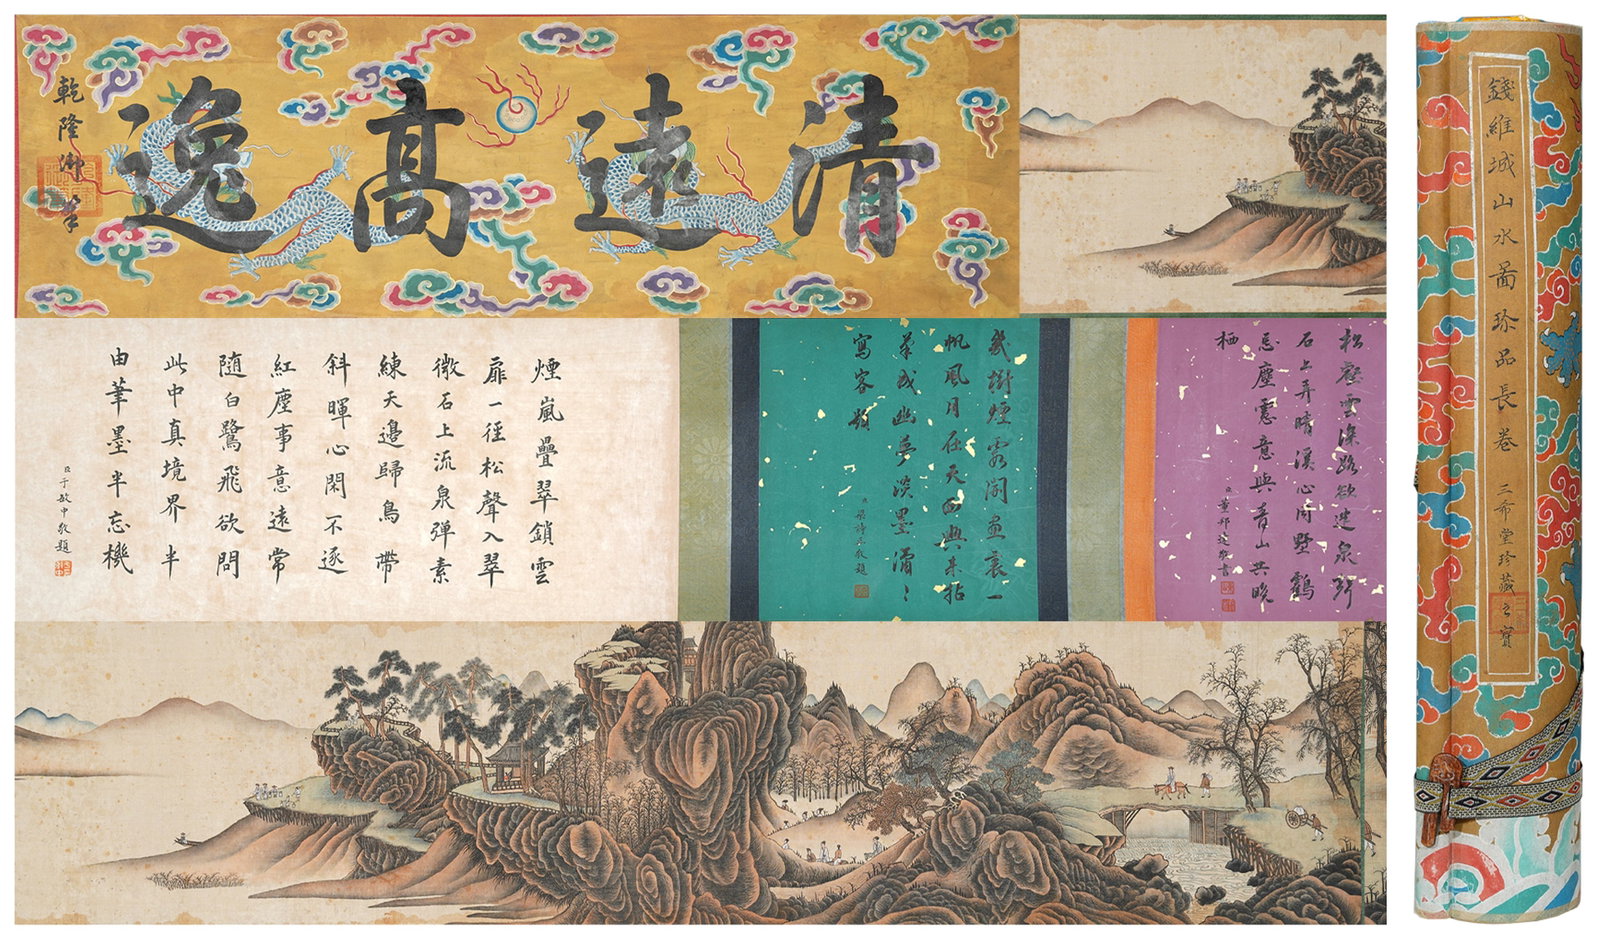 清遠高逸
乾隆御筆
松壑雲深路欲迷泉聲
石上弄晴溪心同野鶴
忘塵慮意與青山共晚
栖
臣董邦達敬書
幾樹煙霞閣畫裏一
帆風月在天西興來拈
筆成幽夢淡墨瀟瀟
寫客
臣梁詩正敬題
煙嵐疊翠鎖雲
扉一徑松聲入翠
微石上流泉彈素
練天邊歸鳥帶
斜暉心閑不逐
紅塵事意遠常
隨白鷺飛欲問
此中真境界半
由筆墨半忘機
臣于敏中敬題
錢維城山水圖珍品長卷
三希堂珍藏之寶